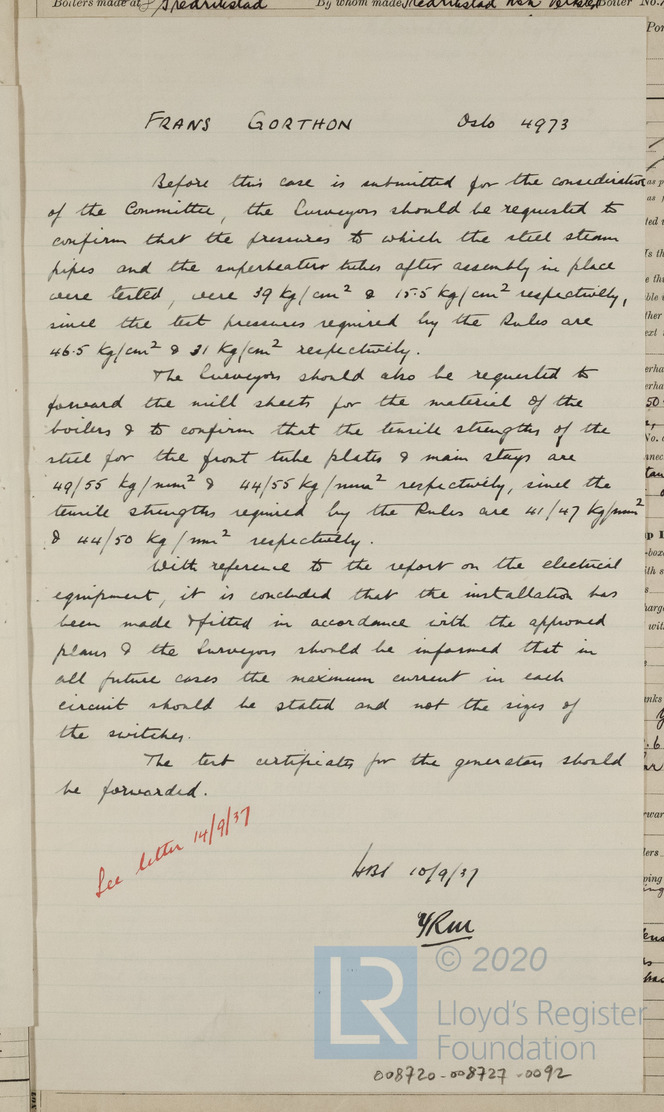 Boilers made at Fredrikstad By whom made Fredrikstad Mek Verksted Boiler No.
Por
FRANS GORTHON Oslo 4973
Before this case is submitted for the consideration
of the Committee, the Surveyors should be requested to
confirm that the pressures to which the steel steam
pipes and the superheater tubes after assembly in place
were tested, were 39 kg/cm² & 15.5 kg/cm² respectively,
since the test pressures required by the Rules are
46.5 kg/cm² & 31 kg/cm² respectively.
The Surveyors should also be requested to
forward the mill sheets for the material of the
boilers & to confirm that the tensile strengths of the
steel for the front tube plates & main stays are
49/55 kg/mm² & 44/55 kg/mm² respectively, since the
tensile strengths required by the Rules are 41/47 kg/mm²
& 44/50 kg/mm² respectively.
With reference to the report on the electrical
equipment, it is concluded that the installation has
been made & fitted in accordance with the approved
plans & the Surveyors should be informed that in
all future cases the maximum current in each
circuit should be stated and not the sizes of
the switches.
The test certificates for the generators should
be forwarded.
See letter 14/9/37
10/9/37
LR
© 2020
Lloyd's Register
Foundation
008720-008727-0092